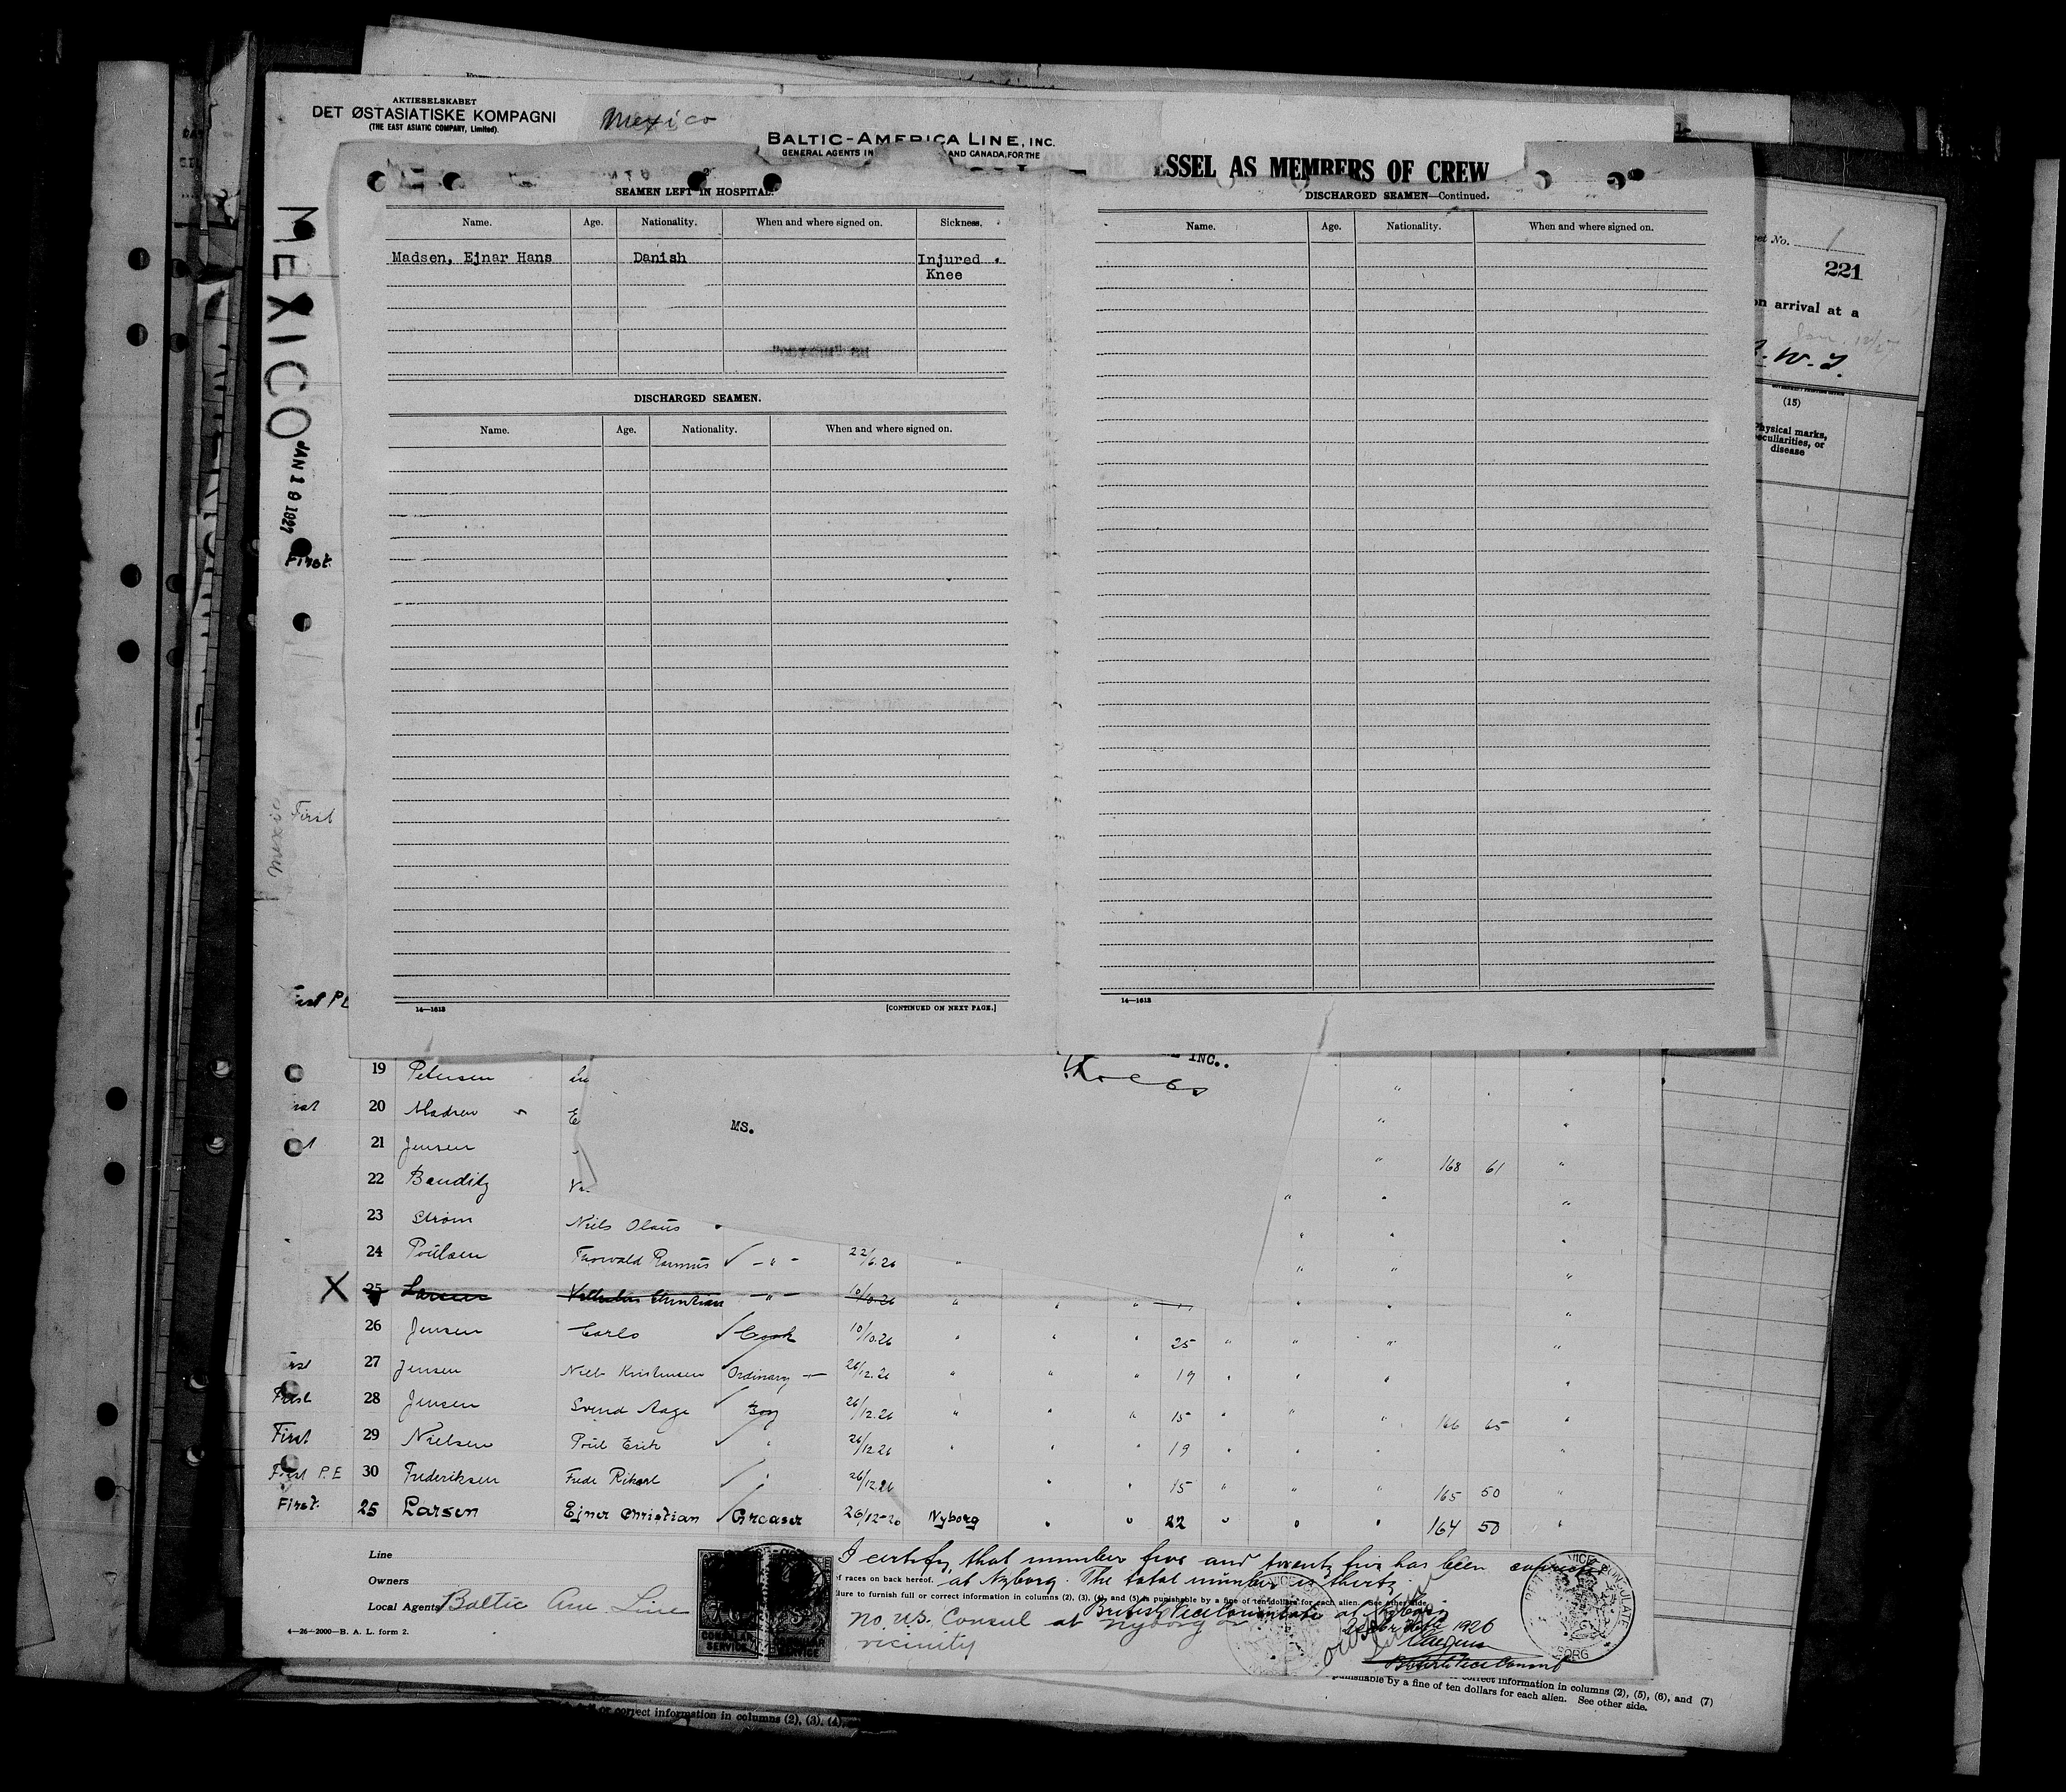 AKTIESELSKABET
DET ØSTASIATISKE KOMPAGNI
(THE EAST ASIATIC COMPANY, Limited).
Mexico
BALTIC-AMERICA LINE, INC.
GENERAL AGENTS IN AND CANADA, FOR THE
ESSEL AS MEMBERS OF CREW
MEXICO JAN 19 1927
First.
First
Mexic
SEAMEN LEFT IN HOSPITAL.
Name. Age. Nationality. When and where signed on. Sickness.
Madsen, Ejnar Hans Danish Injured
Knee
DISCHARGED SEAMEN.
Name. Age. Nationality. When and where signed on.
14—1613 [CONTINUED ON NEXT PAGE.]
DISCHARGED SEAMEN—Continued.
Name. Age. Nationality. When and where signed on.
14—1613
et No. 1
221
on arrival at a
(15)
Physical marks,
peculiarities, or
disease
INC..
MS.
19 Petersen
20 Madsen E
21 Jensen " 168 61 "
22 Banditz
23 Strøm Niels Olaus
24 Poulsen Thorvald Rasmus ✓ — " — 22/6.26 "
X 25 Larsen Vilhelm Christian — " — 10/10.26 " " "
26 Jensen Carlo ✓ Cook 10/10.26 " " " 25 " " "
27 Jensen Niels Kristensen Ordinary 26/12.26 " " " 19 " " "
First 28 Jensen Svend Aage ✓ Boy 26/12.26 " " " 15 " " " 166 65 "
First 29 Nielsen Poul Erik ✓ " 26/12.26 " " " 19 " " "
First P.E 30 Frederiksen Frede Rikard ✓ " 26/12.26 " " 15 " " " 165 50 "
First. 25 Larsen Ejner Christian ✓ Greaser 26/12-20 Nyborg " " 22 " " " 164 50 "
Line
Owners
Local Agents Baltic Am Line
4—26—2000—B. A. L. form 2.
CONSULAR SERVICE
I certify that number five and twenty five has been
of races on back hereof. at Nyborg. The total number is thirty
ilure to furnish full or correct information in columns (2), (3), (4), and (5) is punishable by a fine of ten dollars for each alien. See other side.
British Vice Consulate at Nyborg
No U.S. Consul at Nyborg or
vicinity
1926
British Vice Consul
correct information in columns (2), (5), (6), and (7)
punishable by a fine of ten dollars for each alien. See other side.
or correct information in columns (2), (3), (4),